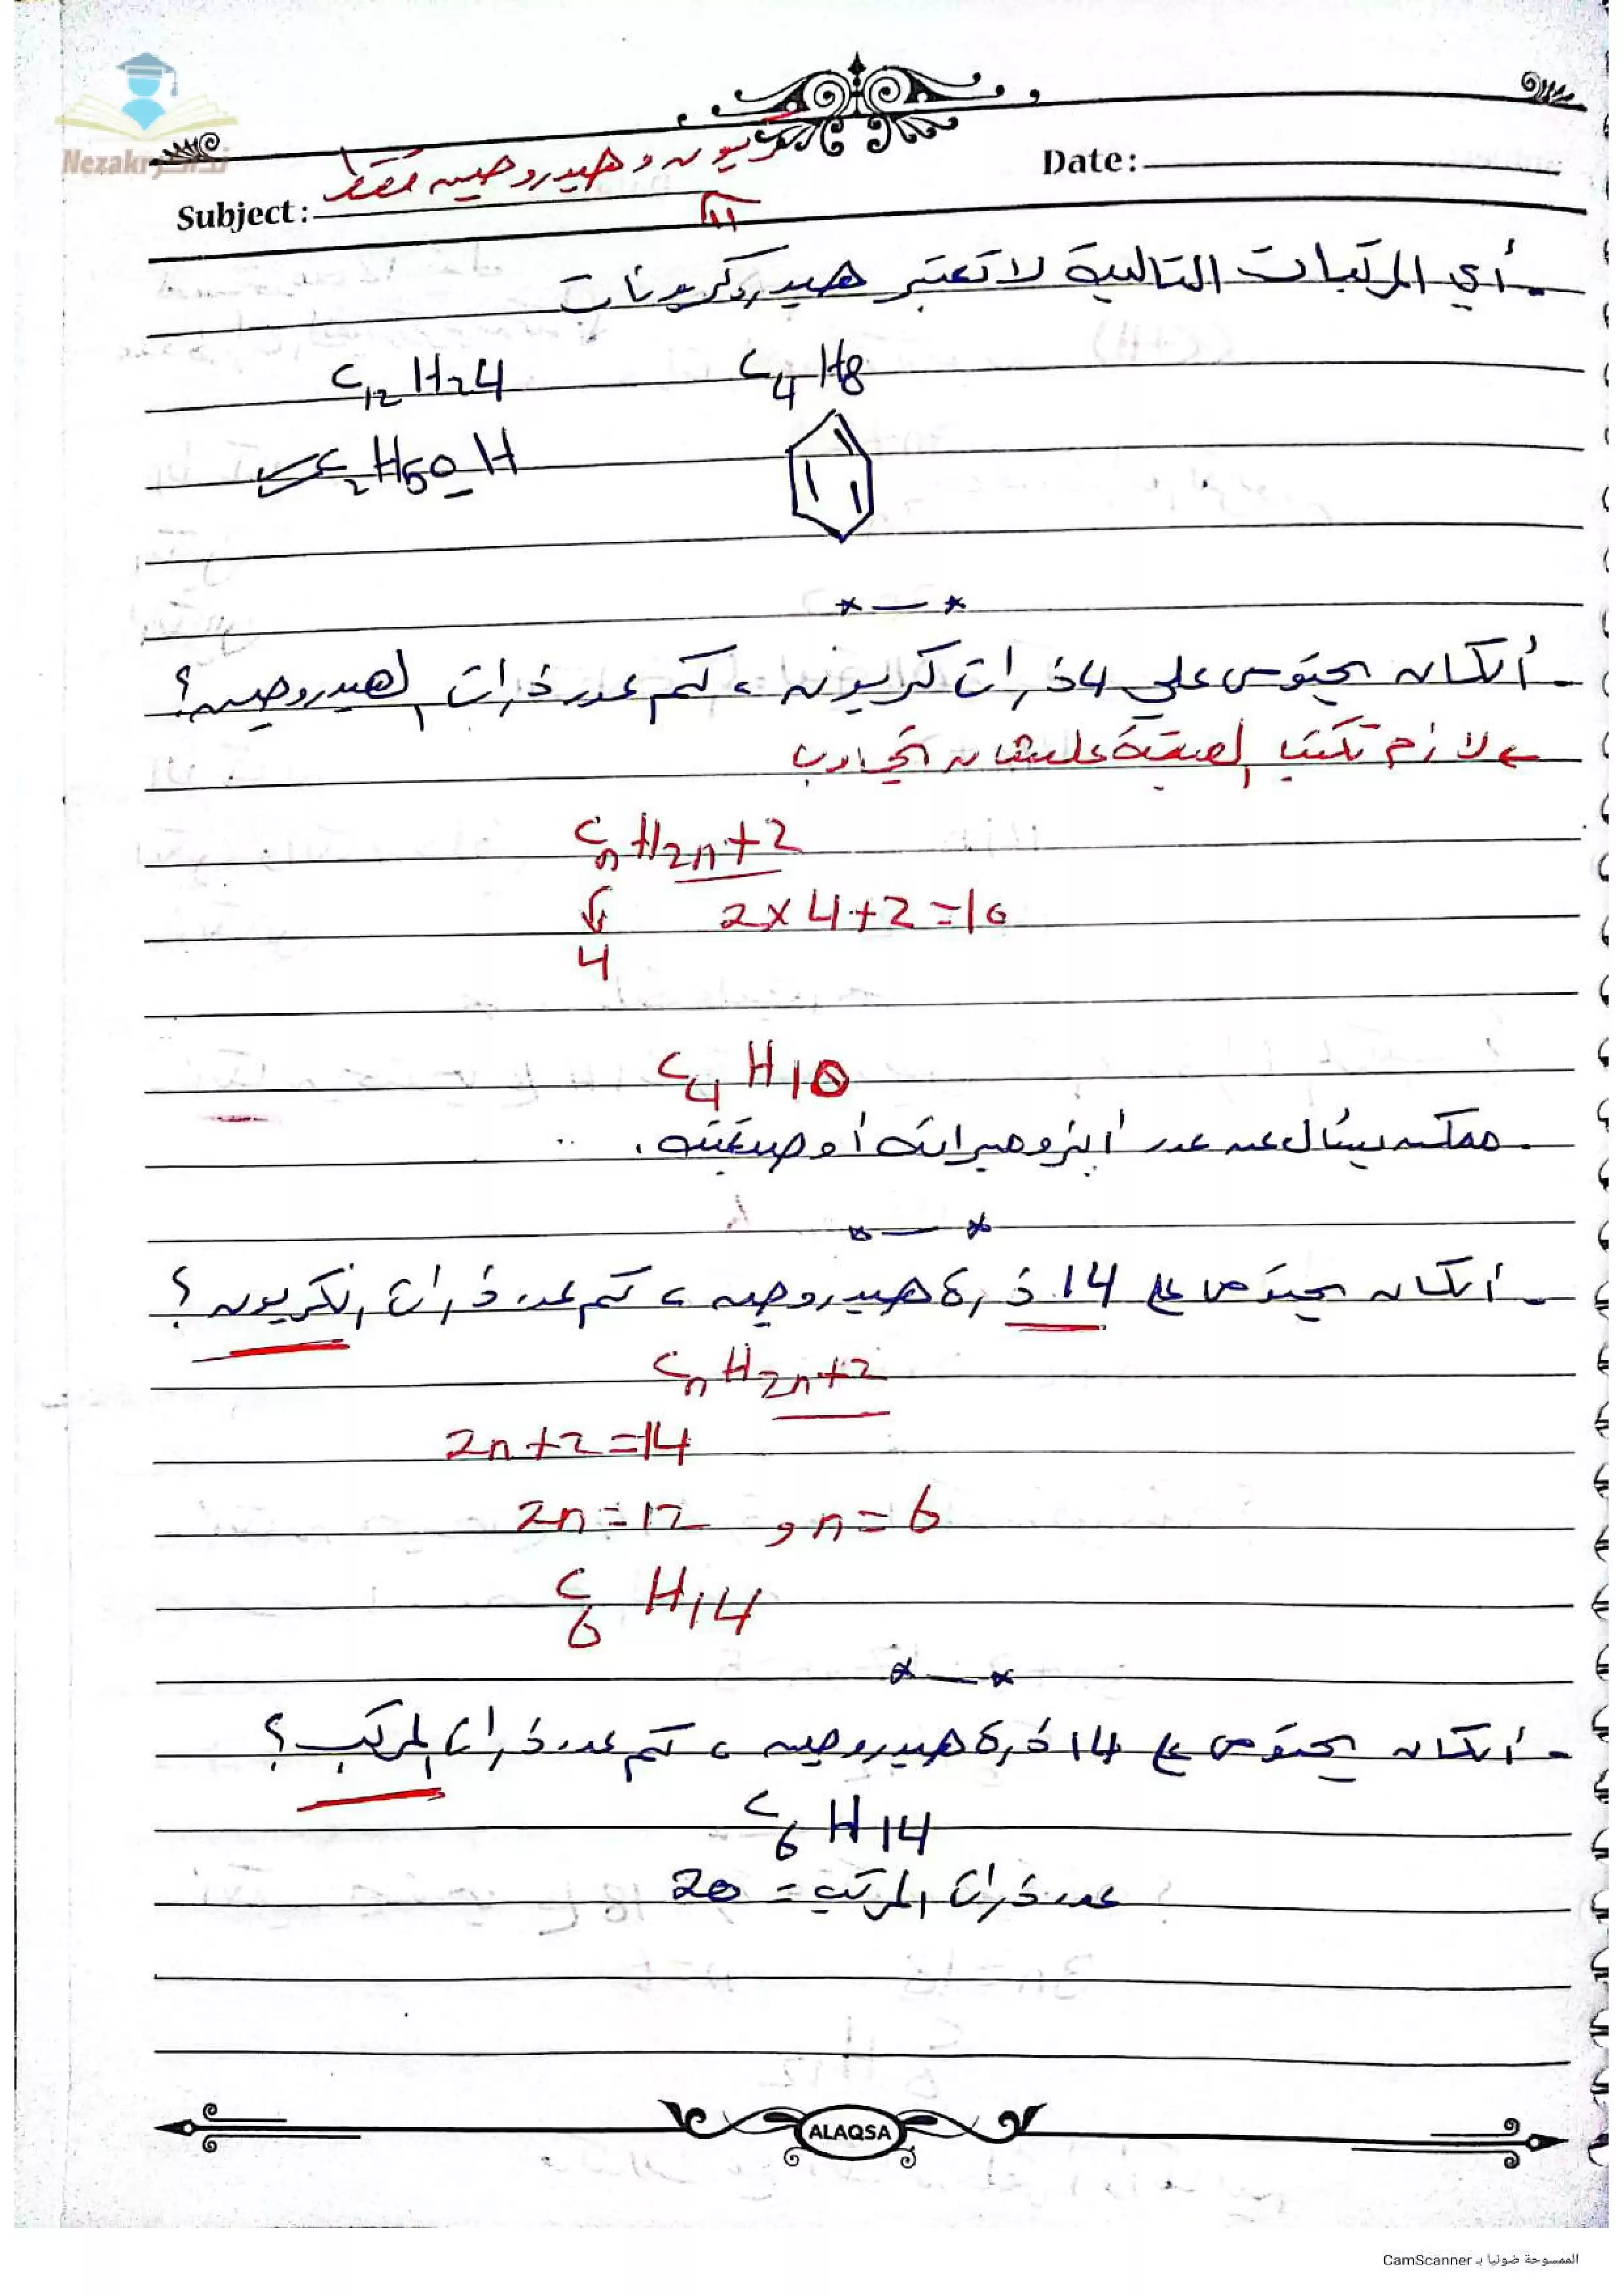 Nezakr نذاكر
كربون وهيدروجين فقط
Date:
Subject:
- أي المركبات التالية لا تعتبر هيدروكربونات
C12 H24 C4 H8
C2H5OH
- ألكان يحتوي على 4 ذرات كربون ، كم عدد ذرات الهيدروجين؟
← لازم تكتب الصيغة علشان تجاوب
CnH2n+2
2×4+2=10
4
C4 H10
- ممكن يسأل عن عدد أيزوميراته أو صيغته . ..
- ألكان يحتوي على 14 ذرة هيدروجين ، كم عدد ذرات الكربون؟
CnH2n+2
2n+2=14
2n=12 , n=6
C6 H14
- ألكان يحتوي على 14 ذرة هيدروجين ، كم عدد ذرات المركب؟
C6 H14
عدد ذرات المركب = 20
ALAQSA
الممسوحة ضوئيا بـ CamScanner